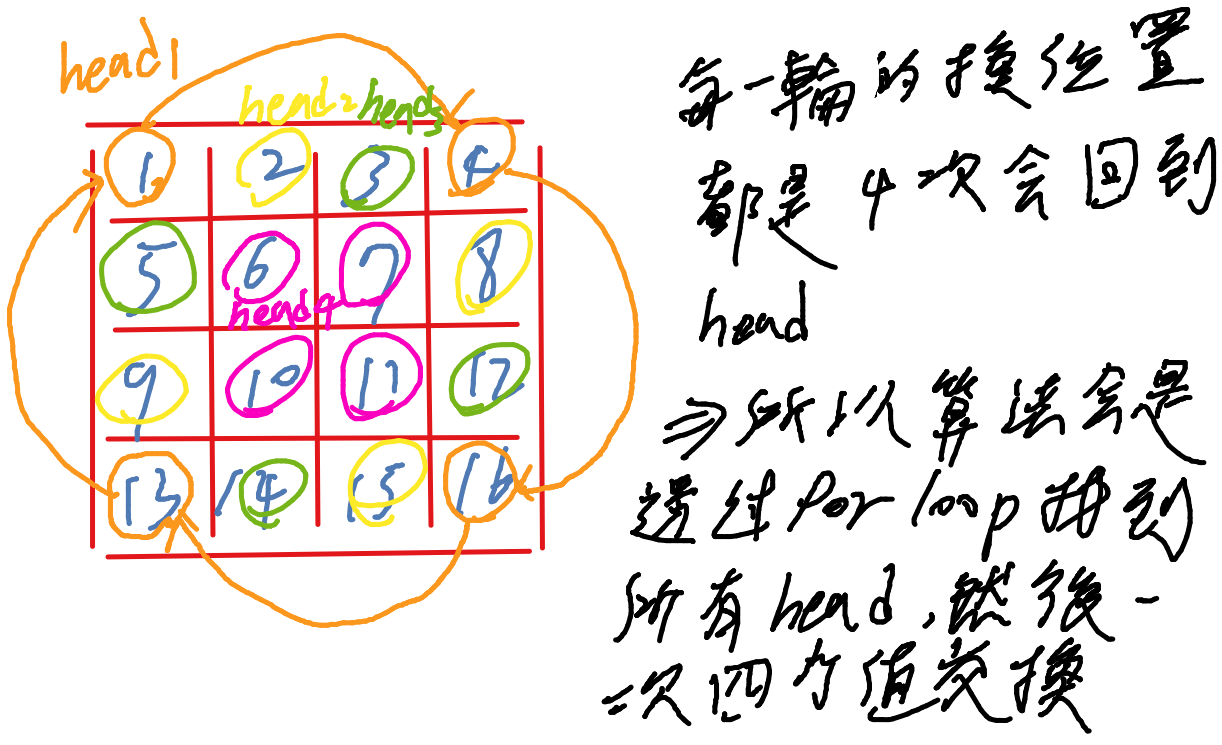 head1
head2 head3
1 2 3 4
5 6 7 8
head4
9 10 11 12
13 14 15 16
每一輪的換位置
都是4次会回到
head
⇒所以算法会是
透过for loop找到
所有head,然後一
次四个值交換